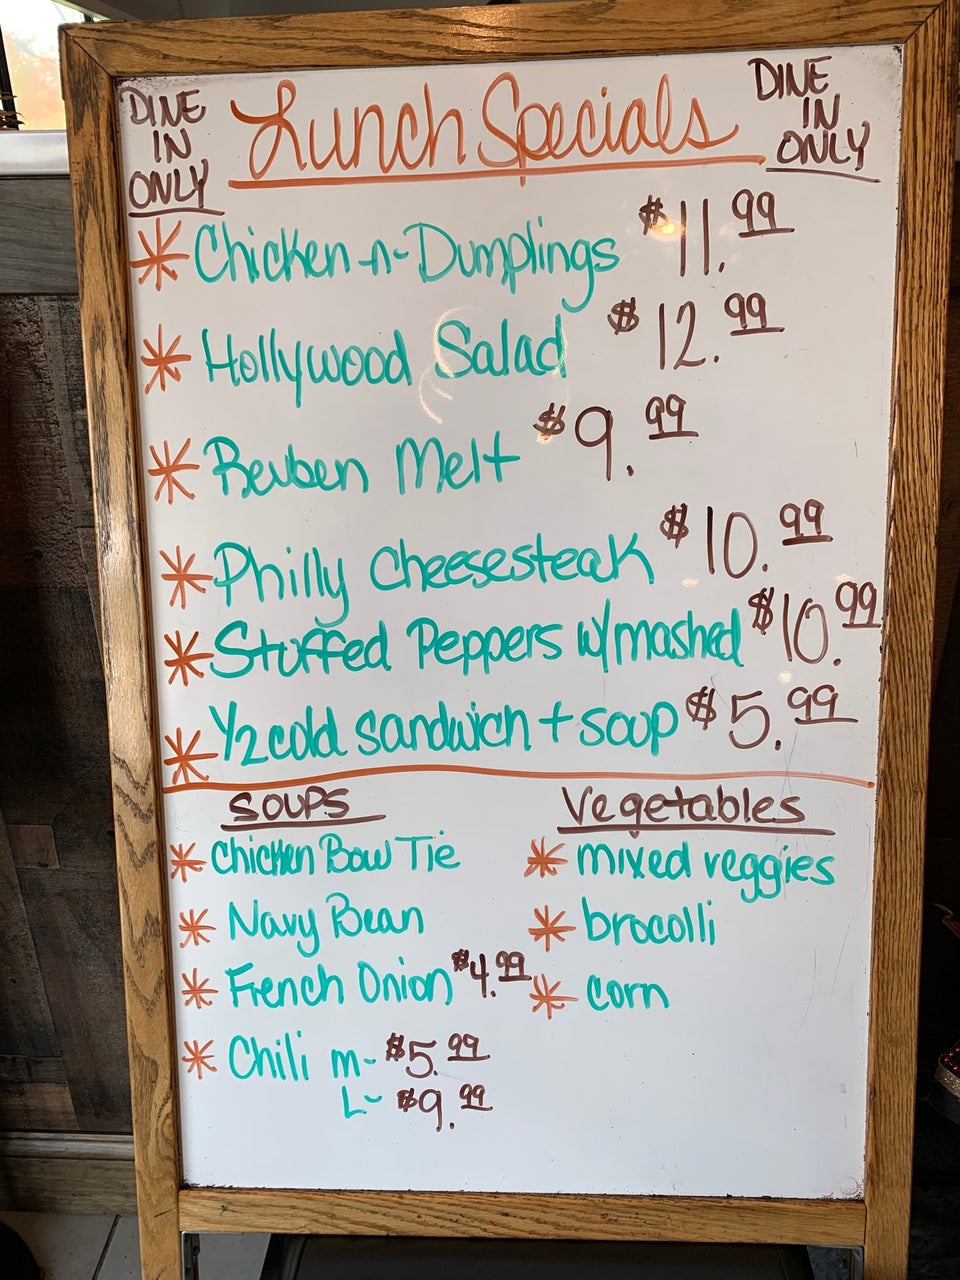 DINE IN ONLY
Lunch Specials
DINE IN ONLY
* Chicken-n-Dumplings $11.99
* Hollywood Salad $12.99
* Reuben Melt $9.99
* Philly Cheesesteak $10.99
* Stuffed Peppers w/mashed $10.99
* 1/2 cold sandwich + soup $5.99
SOUPS
* Chicken Bow Tie
* Navy Bean
* French Onion $4.99
* Chili m- $5.99
L- $9.99
Vegetables
* mixed veggies
* brocolli
* corn